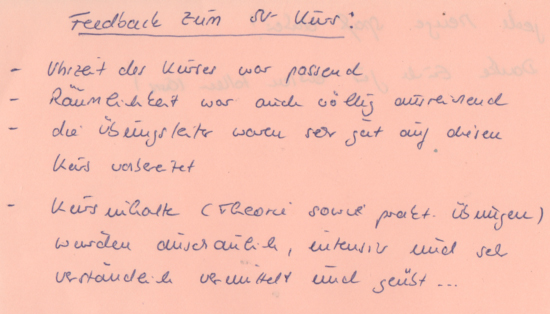 Feedback zum SV-Kurs:
- Uhrzeit des Kurses war passend
- Räumlichkeit war auch völlig ausreichend
- die Übungsleiter waren sehr gut auf diesen
Kurs vorbereitet
- Kursinhalte (Theorie sowie prakt. Übungen)
wurden anschaulich, intensiv und sehr
verständlich vermittelt und geübt...